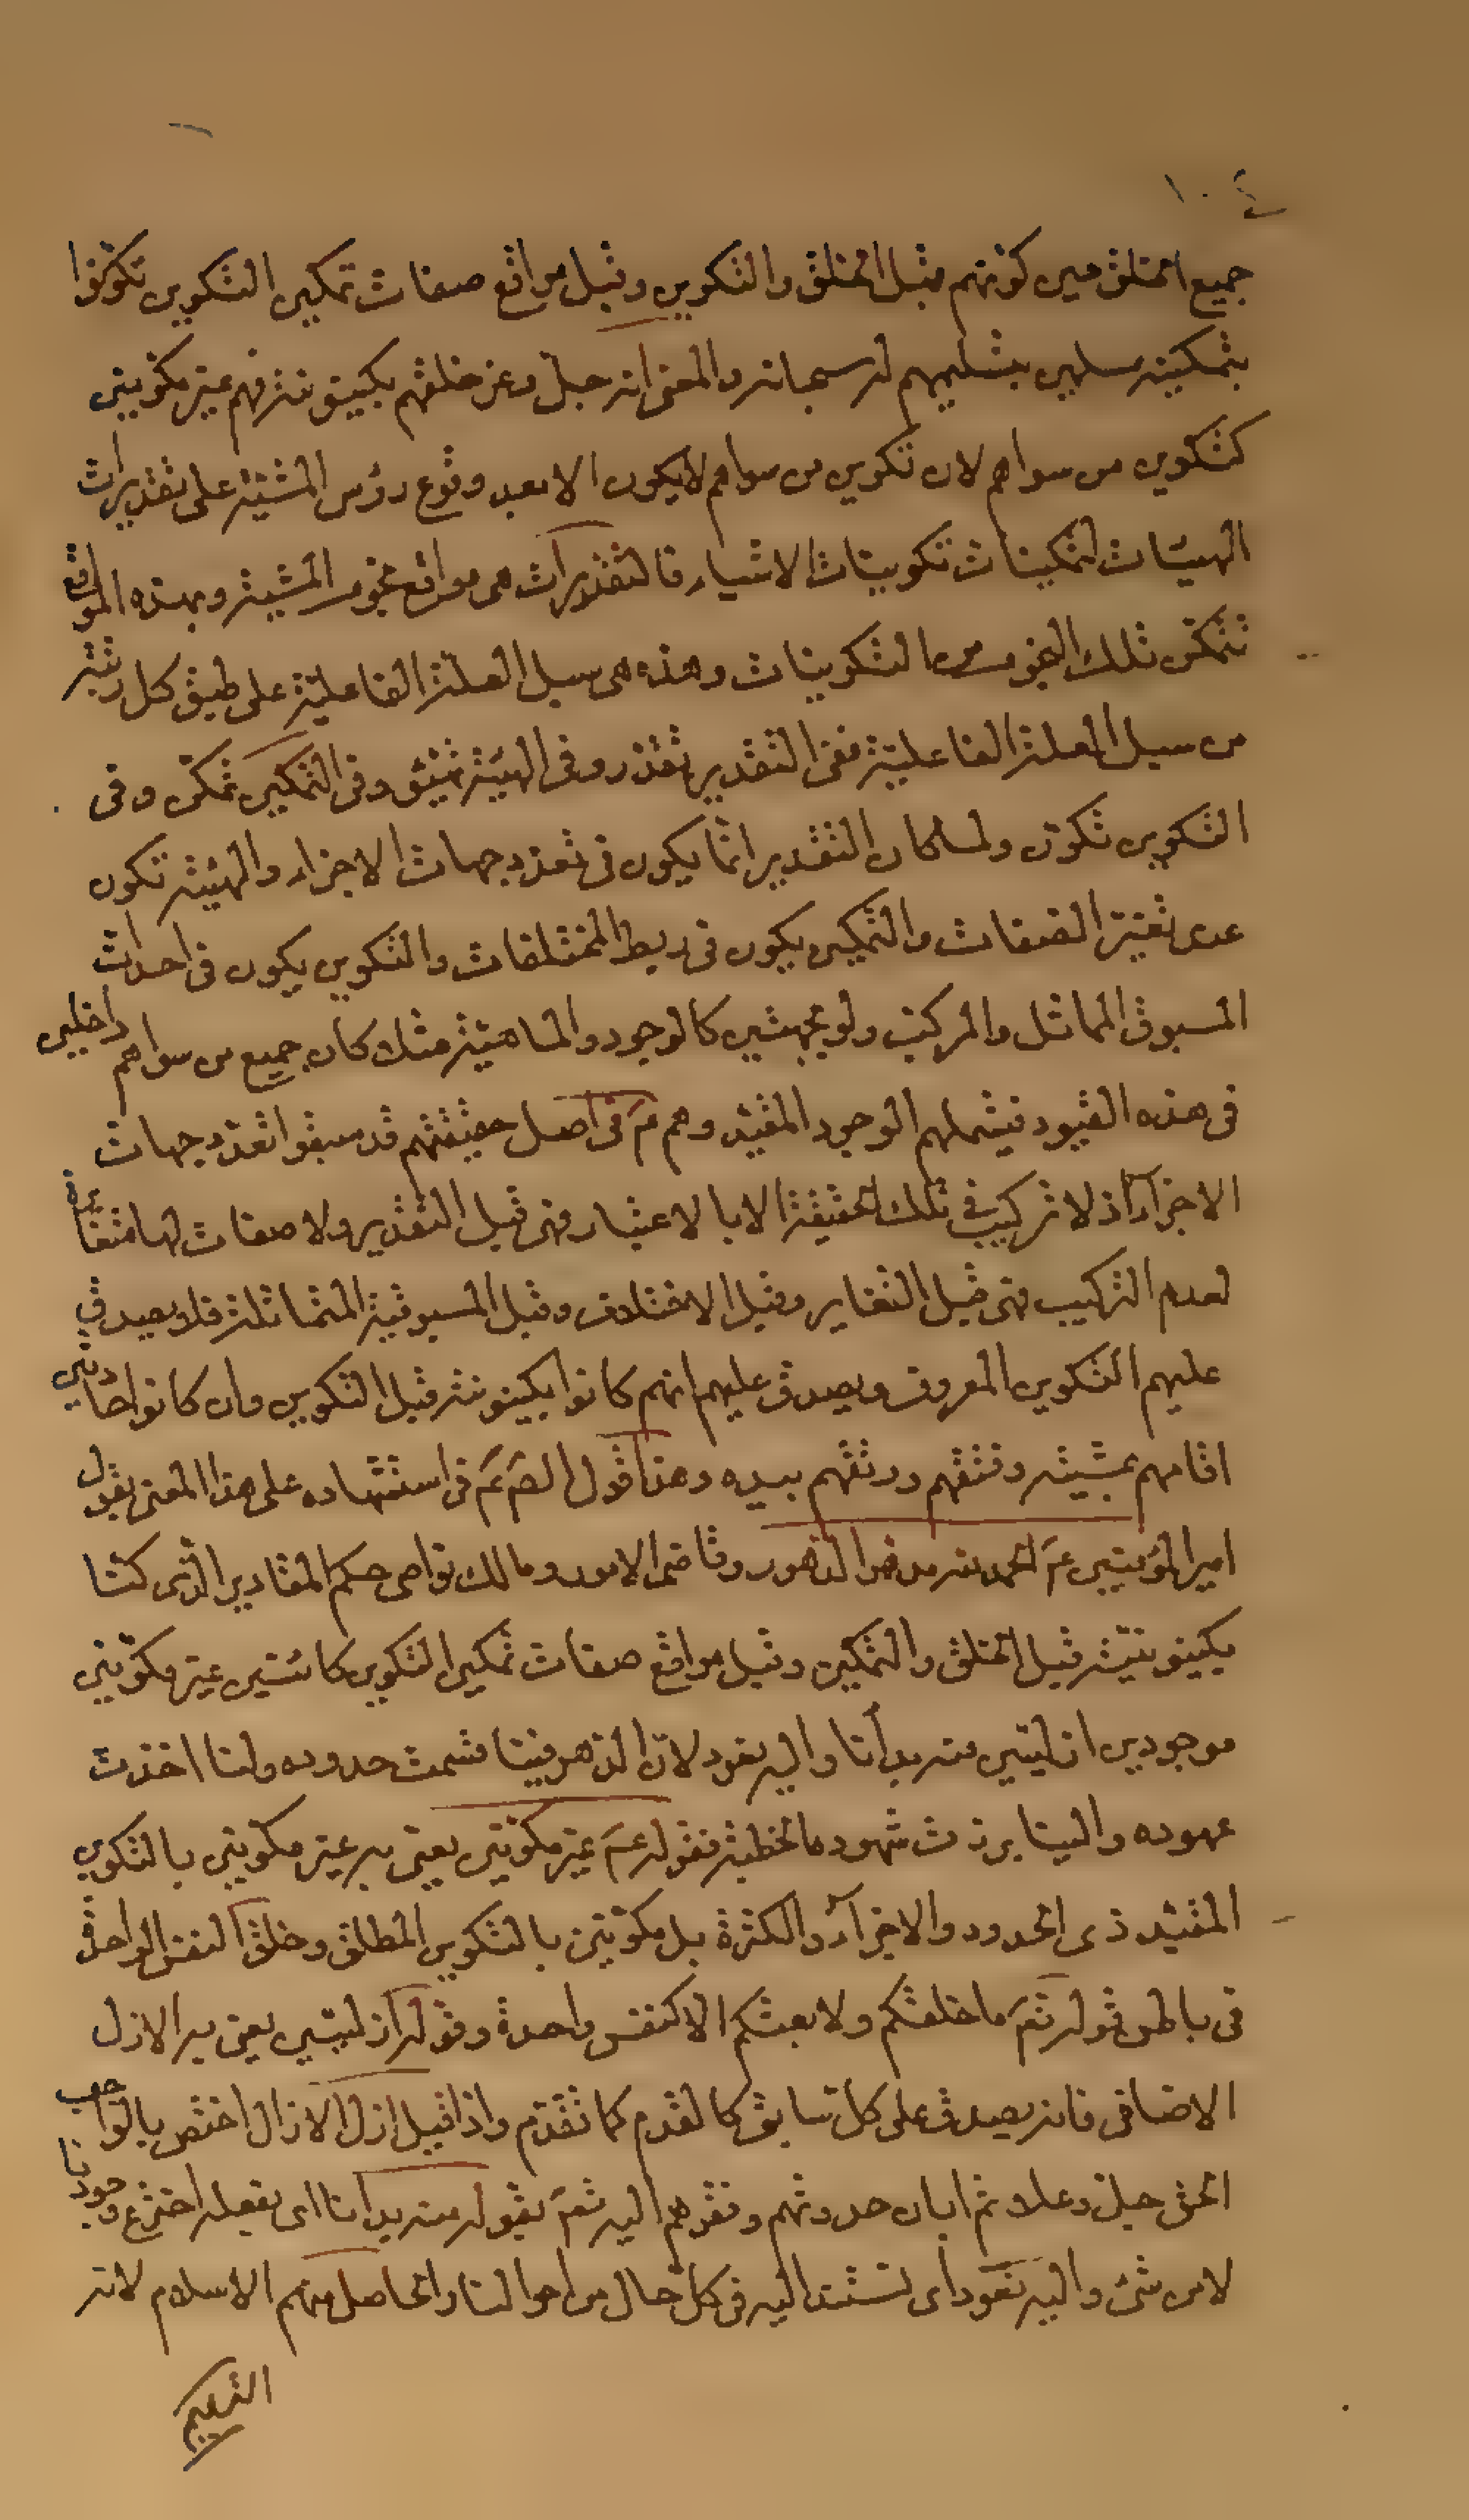 ١٠٤
جميع الخلق حين كونهم قبل الخلق والتكوين وقبل مواقع صفات تمكين التكوين تكونوا
بتمكينه مسلمين بتسليمهم له سبحانه والمعنى انه جل وعز خلقهم بكينونته فهم غير مكونين
كتكوين من سواهم لان تكوين من سواهم لايكون الا بعد وقوع رؤس المشية على تقديرات
الهيئات لتمكينات تكوينات الاشياء فالتقديرات هى مواقع نجوم المشية وبهذه المواقع
تتمكن تلك النجوم من التكوينات وهذه هى سبل العلة الفاعلية على طبق كل رتبة
من سبل العلة الفاعلية ففى التقدير تقدر وفى الهيئة تهيئ وفى التمكين تمكن وفى
التكوين تكون ولما كان التقدير انما يكون فى تعدد جهات الاجزاء والهيئة تكون
عدى تغير الصفات والتمكين يكون فى ربط المختلفات والتكوين يكون فى احداث
المسبوق المماثل والمركب ولو بجهتين كالوجود والماهية مثلا كان جميع من سواهم داخلين
فى هذه القيود فيشملهم الوجود المقيد وهم ع فى اصل حقيقتهم قد سبقوا تعدد جهات
الاجزاء اذ لا تركيب فى تلك الحقيقة الا بالاعتبار فهى قبل التقدير ولا صفات لها متغايرة
لعدم التركيب فهى قبل التغاير وقبل الاختلاف وقبل المسبوقية المتماثلة فلا يصدق
عليهم التكوين المعروف ويصدق عليهم انهم كانوا بكينونته قبل التكوين وان كانوا حادثين
اقامهم بمشيته وفتقهم ورتقهم بيده وهذا قول الص ع فى استشهاده على هذا المعنى بقول
امير المؤمنين ع الحمد لله مدهر الدهور وقاضى الامور ومالك نواصى حكم المقادير الذى كنا
بكينونيته قبل الخلق والتمكين وقبل مواقع صفات تمكين التكوين كائنين غير مكونين
موجودين ازليين منه بدأنا واليه نعود لان الدهر فينا قسمت حدوده ولنا اخذت
عهوده والينا برزت شهوده الخطبة فقوله ع غير مكونين يعنى به غير مكونين بالتكوين
المقيد ذى الحدود والاجزآء والكثرة بل مكونين بالتكوين المطلق وخلق النفس الواحدة
فى باطن قوله تع ما خلقكم ولا بعثكم الا كنفس واحدة وقوله ازليين يعنى به الازل
الاضافى فانه يصدق على كل سابق كالقدم كما تقدم واذا قيل ازل الازال اختص بالواجب
الحق جل وعلا ثم ابان حدوثهم وفقرهم اليه تع بقوله منه بدأنا اى بفعله اخترع وجودنا
لا من شئ واليه نعود اى نستند اليه فى كل حال من احوالنا والحاصل منهم الاسلام لانه